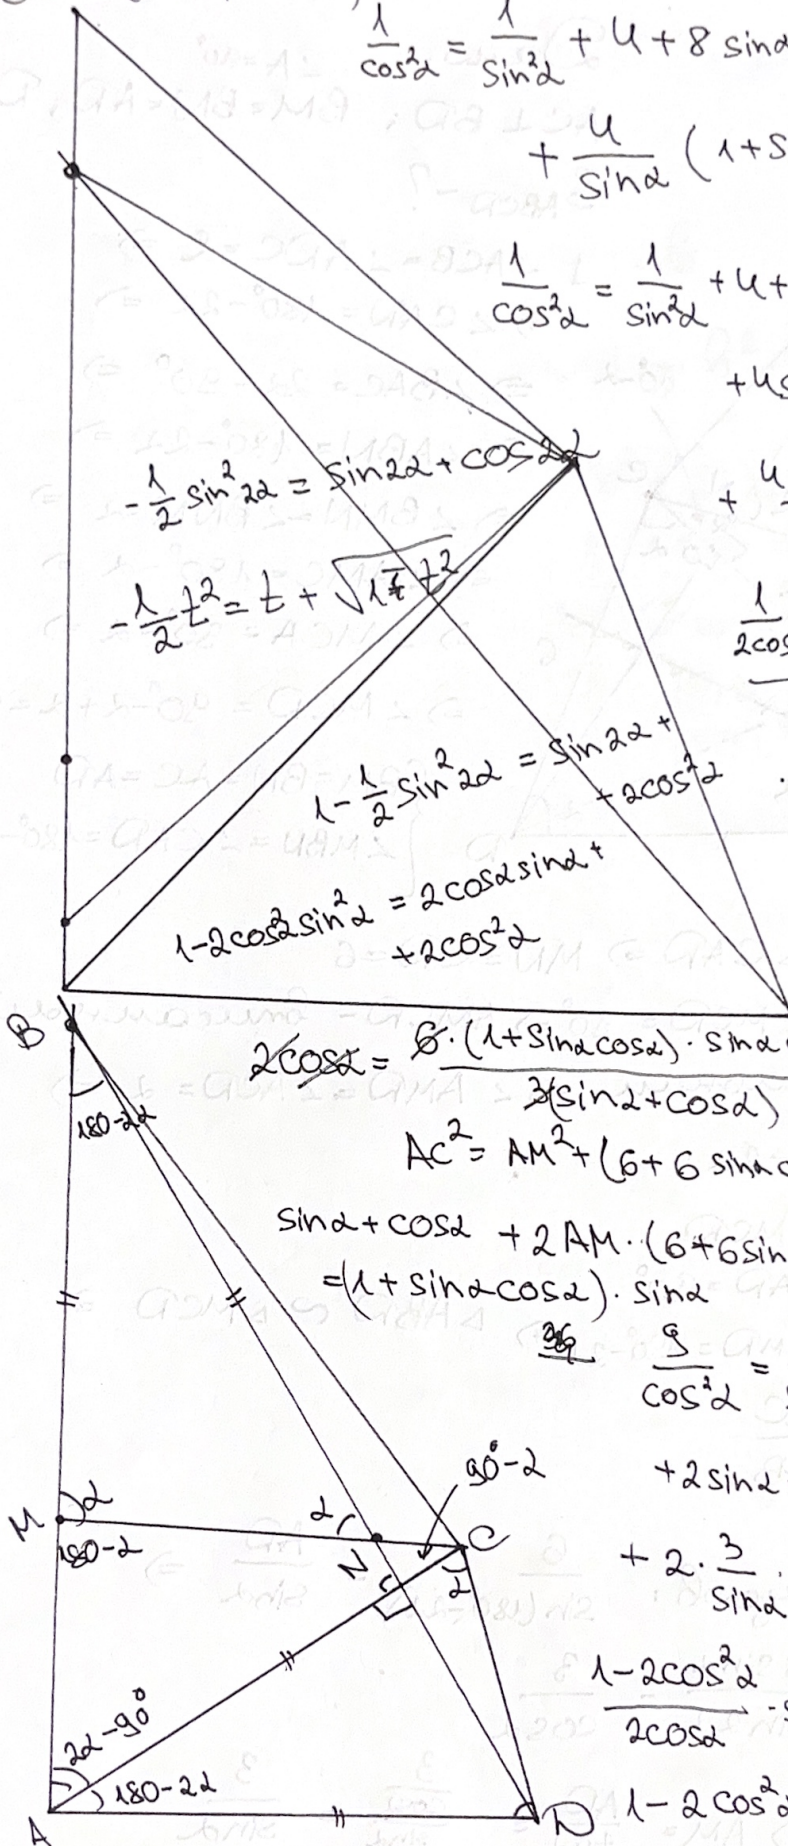 1/cos²α = 1/sin²α + 4 + 8 sinα
+ 4/sinα (1+s
1/cos²α = 1/sin²α + 4 +
+4s
-1/2 sin²2α = sin2α + cos2α
+ 4
-1/2 t² = t +
1/2cos
1 - 1/2 sin²2α = sin2α +
+ 2cos²α
1-2cos²αsin²α = 2cosαsinα +
+2cos²α
B
2cosα = 6·(1+sinαcosα)·sinα / 3(sinα+cosα)
180-2α
AC² = AM² + (6+6 sinαc
sinα+cosα + 2AM·(6+6sin
=(1+sinαcosα)·sinα
36
9/cos²α =
90°-α
+2sinα
M
α
α
180-α
N
C
α
+ 2·3/sinα·
1-2cos²α / 2cosα
2α-90°
180-2α
A
D
1-2cos²α